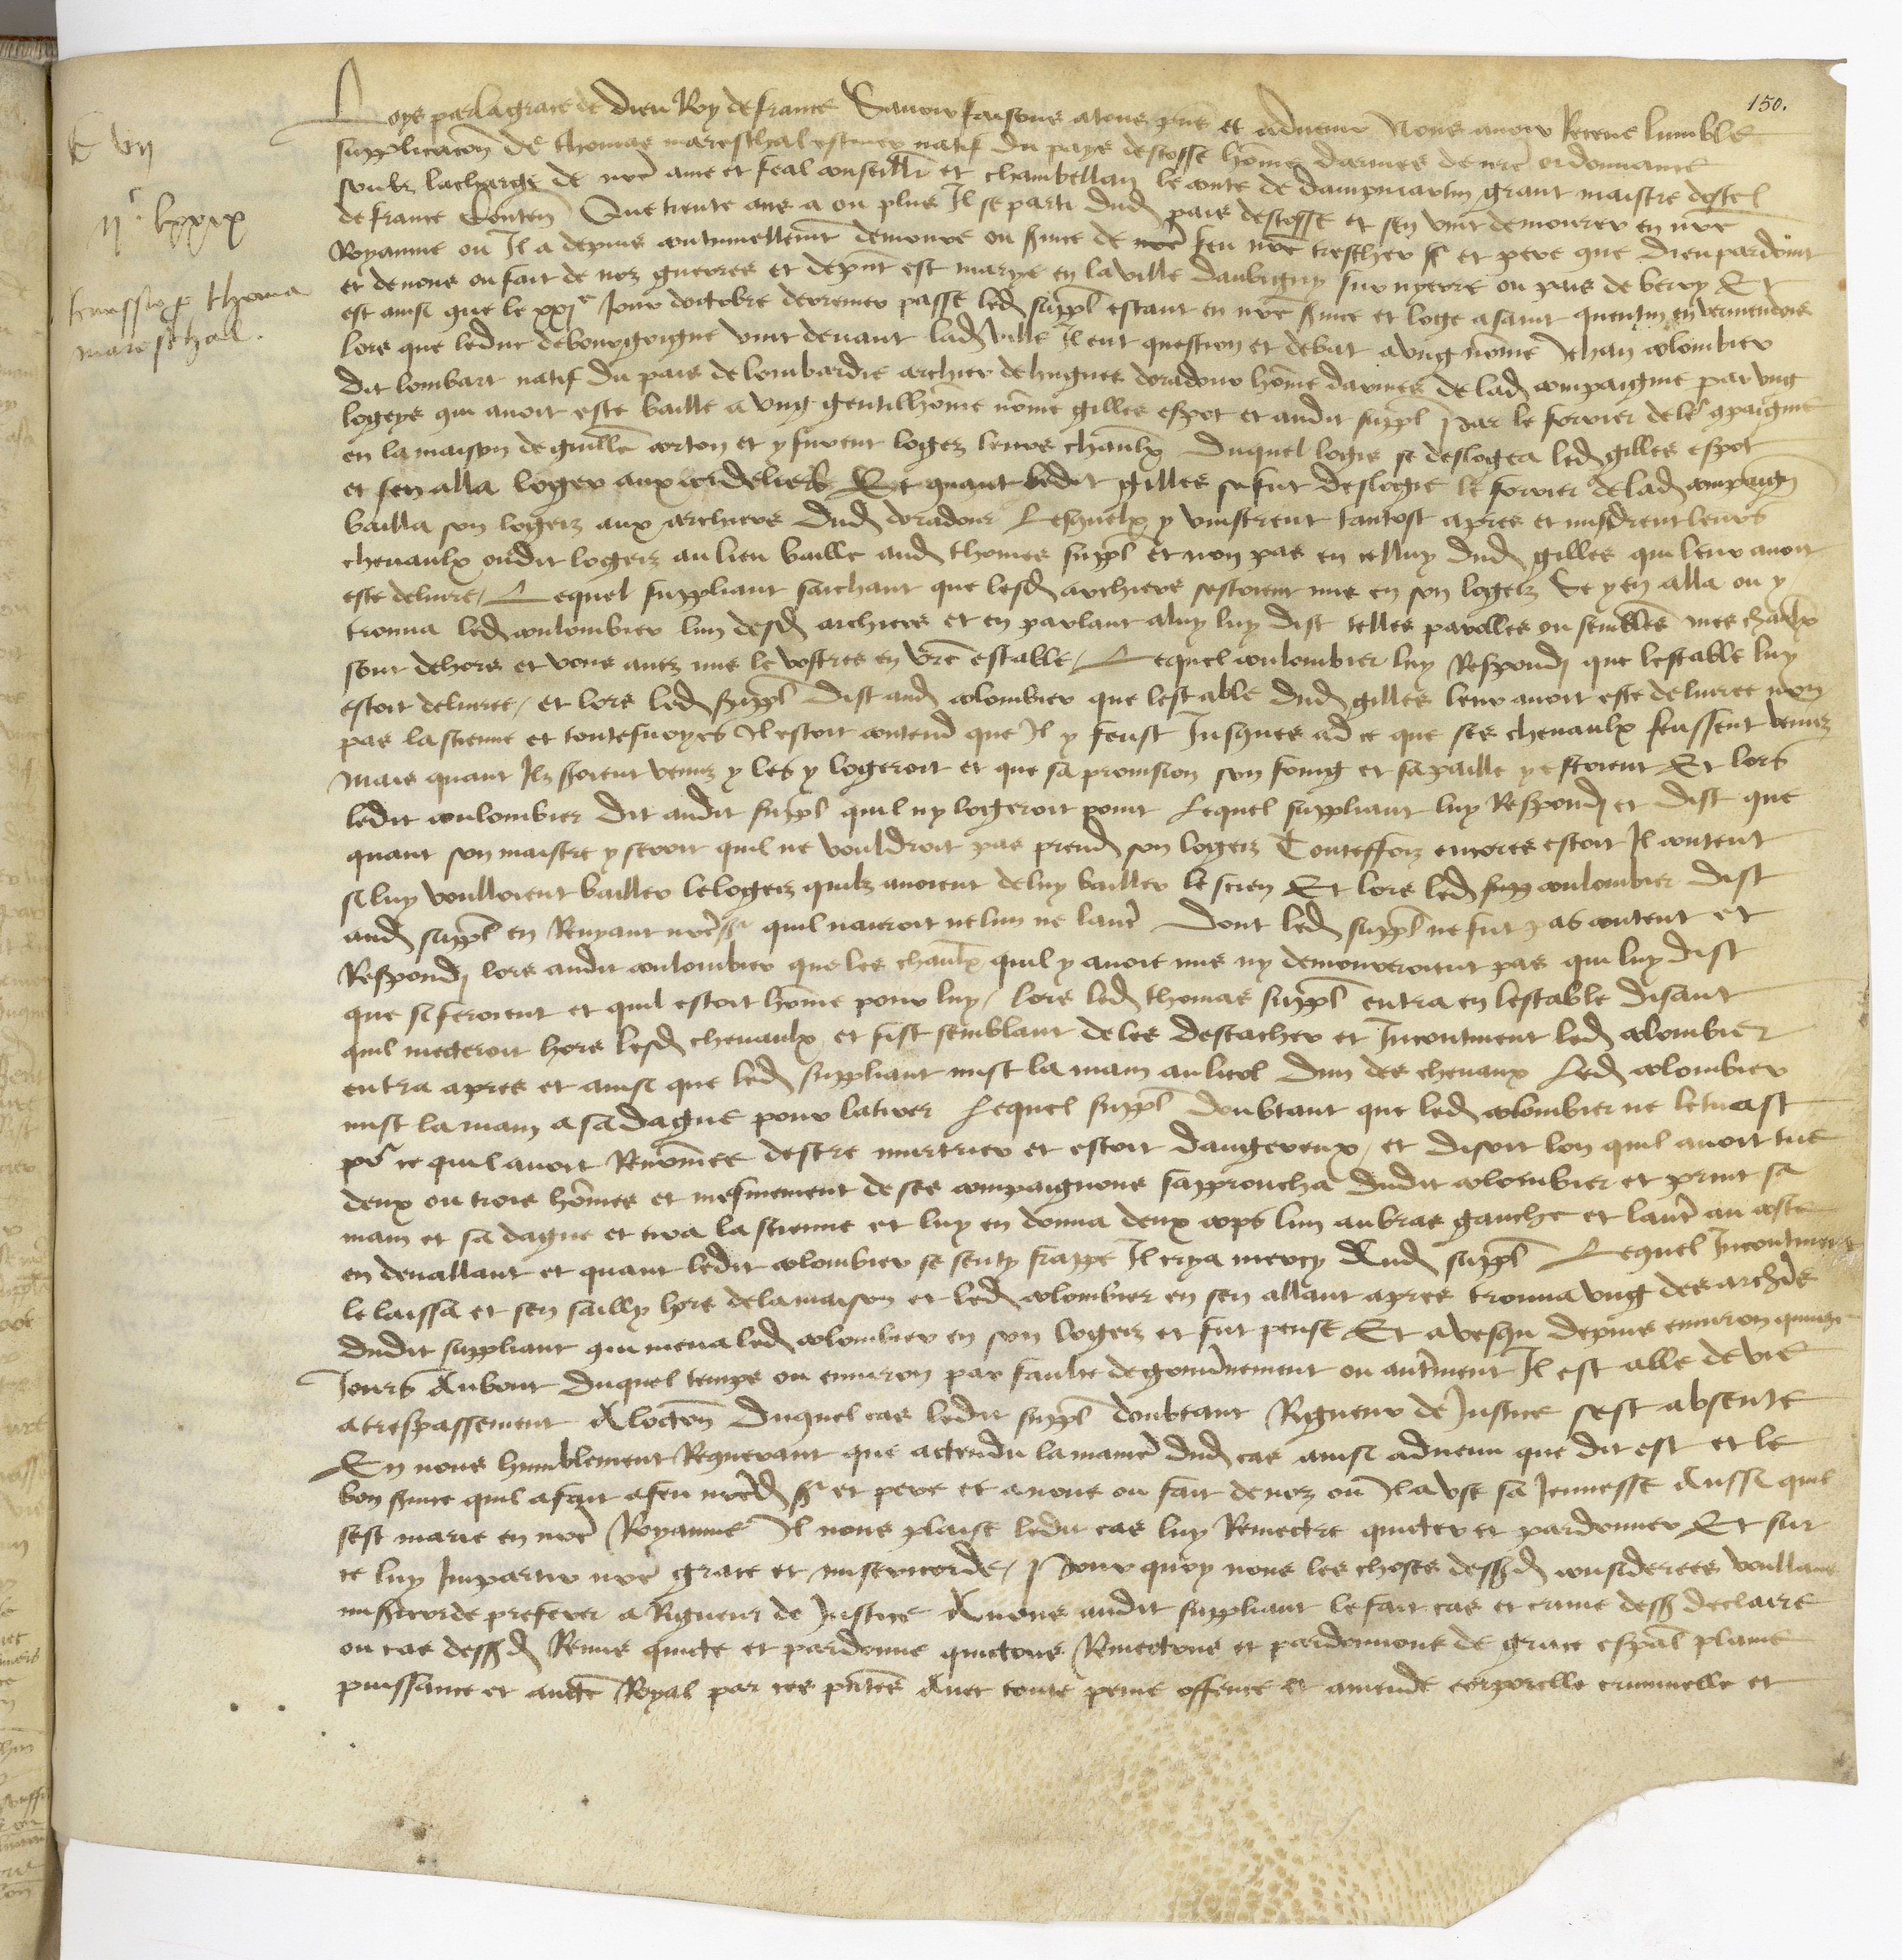 150.
Loys par la grace de Dieu Roy de france Savoir faisons a tous pñs et advenir Nous avoir Receue lumble
supplicacõn de thomas mareschal escuier natif du pays descosse hõme darmes de nrẽ ordonnance
soubz lacharge de nrẽ ame et feal conseillr̃ et chambellan le conte de dampmartin grant maistre dostel
de france Conteñ Que trente ans a ou plus Il se parti dud pais descosse et sen vint demourer en nrẽ
Royaume ou Il a depuis continuellemt̃ demoure ou svice de feu nrẽ treschier sr et pere que dieu pardoint
et de nous ou fait de noz guerres et depñt est marye en laville daubigny sur nyerre ou pais de berry Et
est ainsi que le xxie Jour doctobre derrenier passe led suppl̃ estant en nrẽ svice et loge asaint quentin en vermendois
lors que leduc debourgoigne vint devant lad ville Il eut question et debat a ung nõme Jehan colombier
dit lombart natif du pais de lombardie archier dehugues doradour hõme darmes de lad compaignie par ung
logeys qui avoit este baille a ung gentilhõme nõme gilles espot et audit suppl̃ par le forrier delẽ 9paignie
en lamaison de guillẽ corton et y furent logez leurs chaulx Duquel logis se deslogea led gilles espot
et sen alla loger aux cordeliers Et quant ledit gilles se fut deslogie le forrier delad compaign̄
bailla son logeiz aux archiers dud doradour Lesquelx y vinstrent tantost apres et misdrent leurs
chevaulx oudit logeiz au lieu baille aud thomas suppl̃ et non pas en celluy dud gilles qui leur avoit
este delivre / Lequel suppliant saichant que lesd archiers sestoient mis en son logeiz Se y en alla ou y
trouva led coulombier lun desd archiers et en parlant aluy luy dist telles parolles ou semblẽs mes chaulx
sont dehors et vous avez mis le vostres en vrẽ estable / Lequel coulombier luy Respondi que lestable luy
estoit delivree / et lors led suppl̃ dist aud colombier que lestable dud gilles leur avoit este delivree non
pas la sienne et toutesvoyes Il estoit content que Il y feust Jusques ad ce que ses chevaulx feussent venuz
mais quant Ilz sroient venuz y les y logeroit et que sa provision son foing et sapaille y estoient Et lors
ledit coulombier dit audit suppl̃ quil ny logeroit point Lequel suppliant luy Respondi et dist que
quant son maistre y seroit quil ne vouldroit pas prendr̃ son logeiz Touteffoiz encores estoit Il content
si luy voulloient bailler lelogeiz quilz avoient deluy bailler le sien Et lors led coulombier dist
aud suppl̃ en Renyant nrẽ sr quil nauroit ne lun ne laut̃ Dont led suppl̃ ne fut pas content et
Respondi lors audit coulombier que les chaulx quil y avoit mis ny demoureroient pas qui luy dist
que si feroient et quil estoit hõme pour luy / lors led thomas suppl̃ entra en lestable disant
quil mecteroit hors lesd chevaulx et fist semblant deles destacher et Incontinent led colombier
entra apres et ainsi que led suppliant mist la main au licol dun des chevaux Led colombier
mist la main a sa dague pour la tirer Lequel suppl̃ doubtant que led colombier ne letuast
pr̃ ce quil avoit Renõmee destre murtrier et estoit dangereux / et disoit lon quil avoit tue
deux ou trois hões et mesmement de ses compaignons sapproucha dudit colombier et print sa
main et sa dague et tira la sienne et luy en donna deux cops lun aubras gauche et laut̃ au coste
en devallant et quant ledit colombier se senty frappe Il crya mercy Aud suppl̃ Lequel Incontinent
le laissa et sen sailly hors delamaison et led colombier en sen allant apres trouva ung des archis
dudit suppliant qui mena led colombier en son logeiz et fut pense Et a vesqu depuis environ quinze
Jours Aubout duquel temps ou environ par faulte degouvñement ou aut̃ment Il est alle de vie
atrespassement A locc̃on Duquel cas ledit suppl̃ doubtant Rigueur de Justice sest absente
En nous humblement Requerant que actendu la manie dud cas ainsi advenu que dit est et le
bon svice quil afait afeu nrẽd sr et pere et anous ou fait de noz ou Il a use sa Jeunesse Aussi quil
sest marie en nrẽ Royaume Il nous plaise ledit cas luy Remectre quicter et pardonner Et sur
ce luy Impartir nrẽ grace et misericorde / Pour quoy nous les choses dessd considerees voullans
misicorde preferer a Rigueur de Justice Avons audit suppliant le fait cas et crime dess declaire
ou cas dessd Remis quicte et pardonne quictons Remectons et pardonnons de grace espal̃ plaine
puissance et aucte Royal par ces pñtes Avec toute peine offence et amende corporelle criminelle et
C vii
iic lxxix
Remissio p thoma
mareschal.